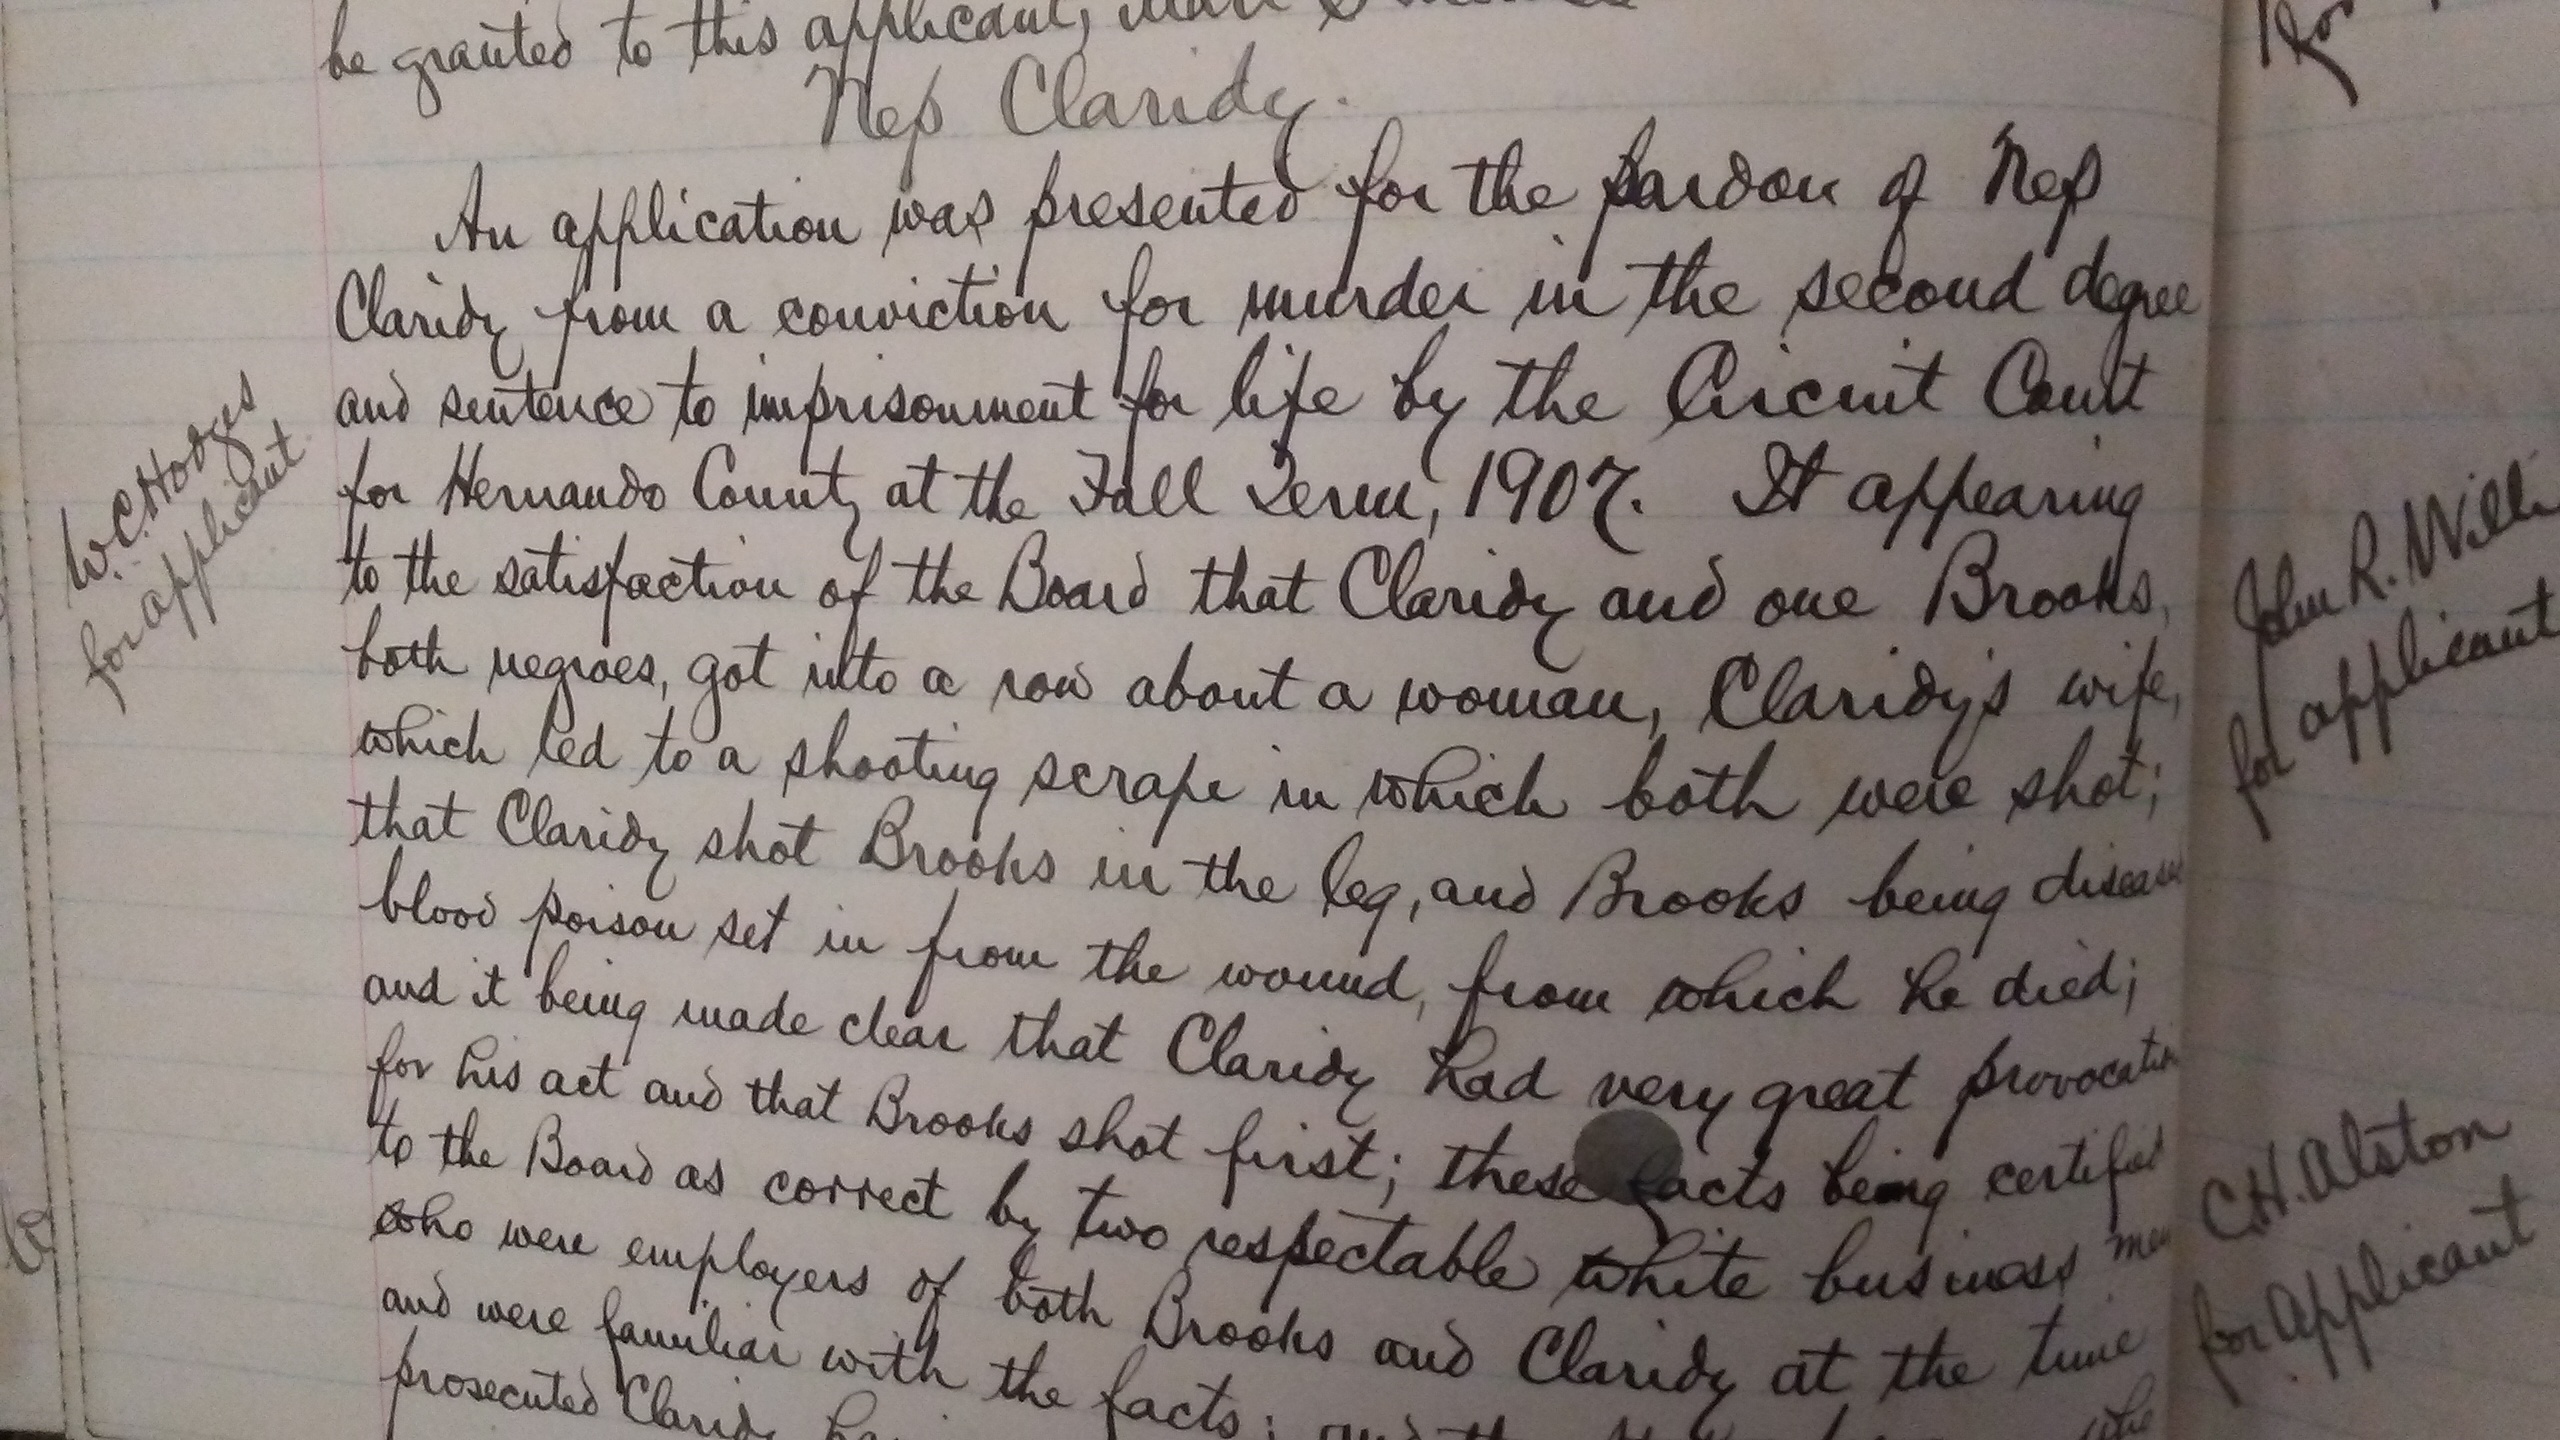 be granted to this applicant,
Nep Claridy.
An application was presented for the pardon of Nep
Claridy from a conviction for murder in the second degree
and sentence to imprisonment for life by the Circuit Coult
for Hernando County at the Fall Term, 1907. It appearing
to the satisfaction of the Board that Claridy and one Brooks,
both negroes, got into a row about a woman, Claridy's wife,
which led to a shooting scrape in which both were shot;
that Claridy shot Brooks in the leg, and Brooks being
blood poison set in from the wound, from which he died;
and it being made clear that Claridy had very great
for his act and that Brooks shot first; these facts being
to the Board as correct by two respectable white business
who were employers of both Brooks and Claridy at the time
and were familiar with the facts; and
prosecuted Claridy
for applicant
John R. Willi
for applicant
C.H. Alston
for applicant